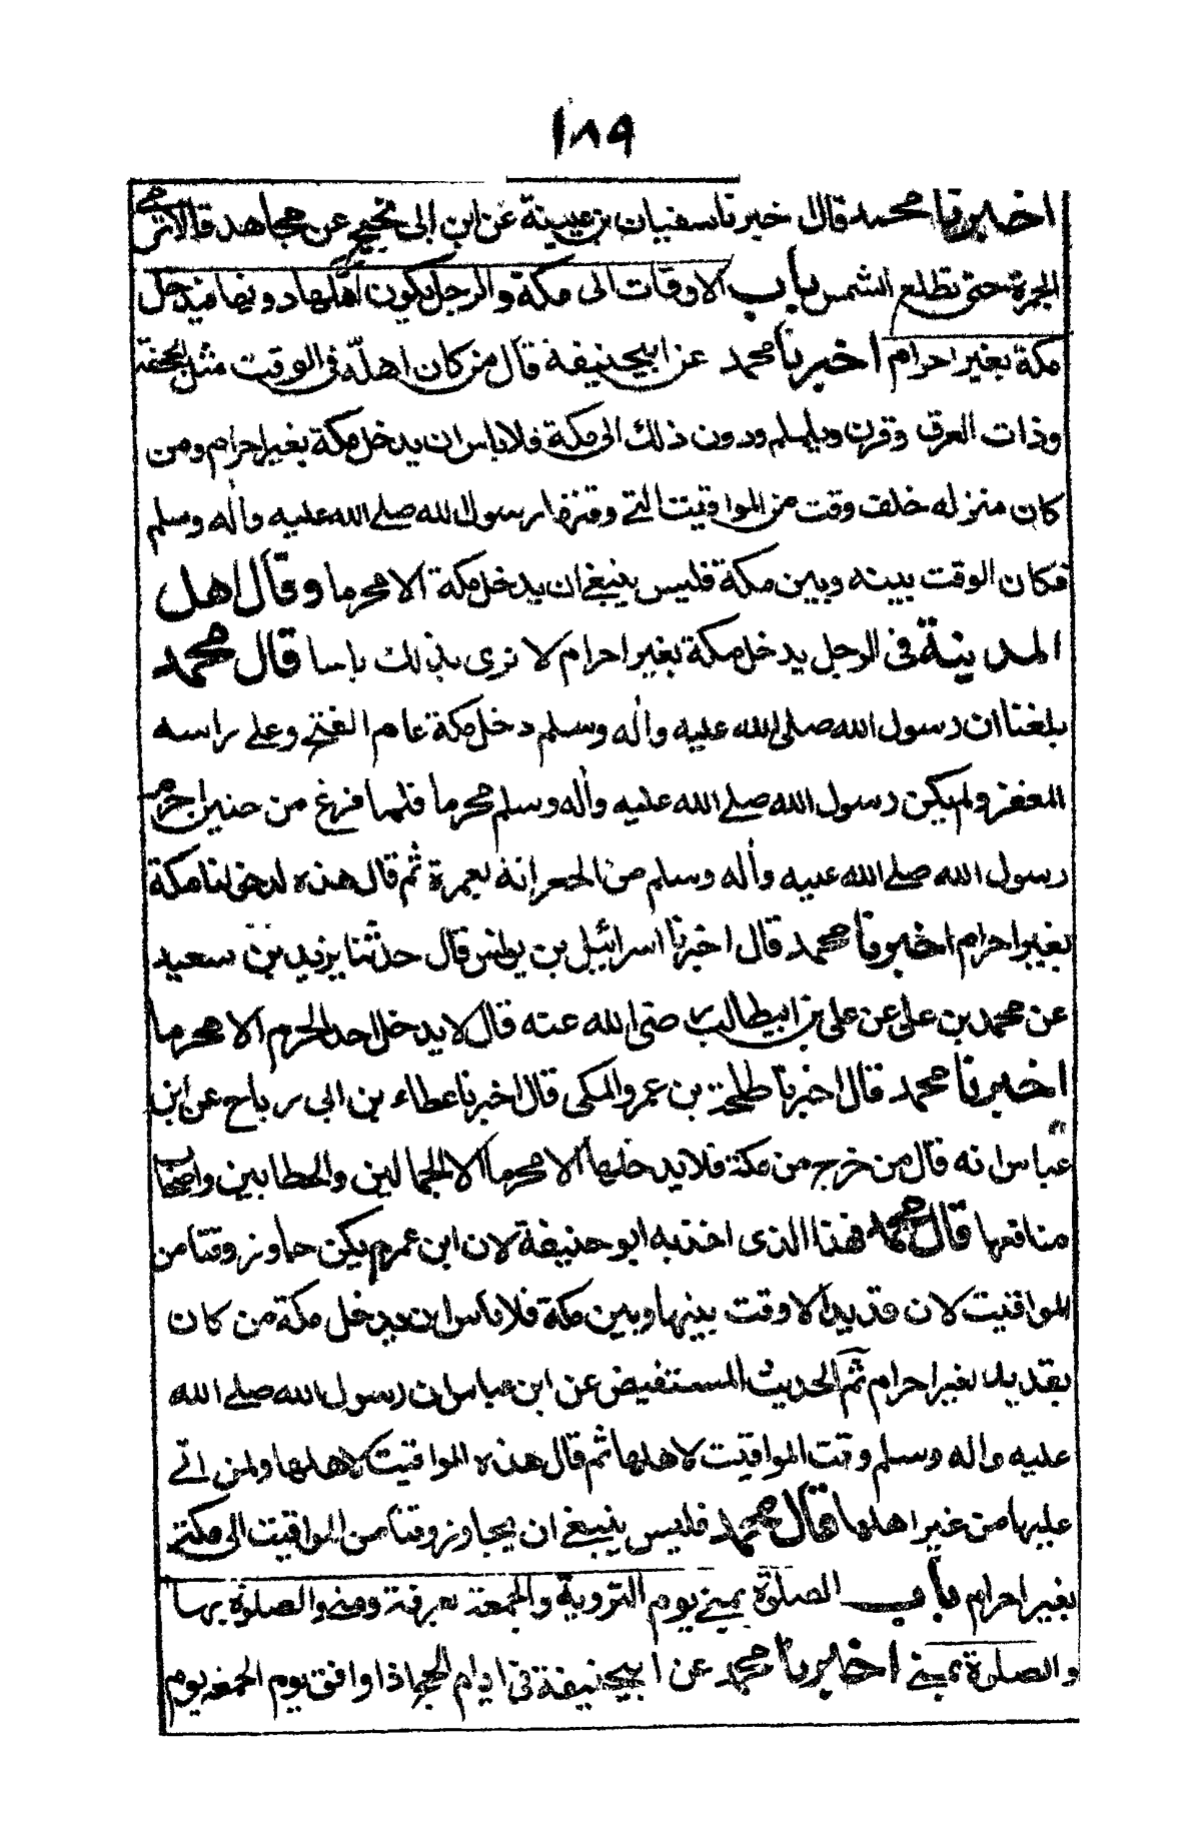 ١٨٩
اخبرنا محمد قال خبرنا سفيان بن عيينة عن ابن ابى نجيح عن مجاهد قال لا ترمى
الجمرة حتى تطلع الشمس باب الاوقات الى مكة والرجل يكون اهلها دونها فيدخل
مكة بغير احرام اخبرنا محمد عن ابيحنيفة قال من كان اهله فى الوقيت مثل الجحفة
وذات العرق وقرن ويلملم ودون ذلك الى مكة فلاباس ان يدخل مكة بغير احرام ومن
كان منزله خلف وقت من المواقيت التى وقتها رسول الله صلى الله عليه واله وسلم
فكان الوقت بينه وبين مكة فليس ينبغى ان يدخل مكة الا محرما وقال اهل
المدينة فى الرجل يدخل مكة بغير احرام لا نرى بذلك باسا قال محمد
بلغنا ان رسول الله صلى الله عليه واله وسلم دخل مكة عام الفتح وعلى راسه
المغفر ولم يكن رسول الله صلى الله عليه واله وسلم محرما فلما فرغ من حنين احرم
رسول الله صلى الله عليه واله وسلم من الجعرانة بعمرة ثم قال هذه لدخولنا مكة
بغير احرام اخبرنا محمد قال اخبرنا اسرائيل بن يونس قال حدثنا يزيد بن سعيد
عن محمد بن على عن على بن ابيطالب رضى الله عنه قال لا يدخل احد الحرم الا محرما
اخبرنا محمد قال اخبرنا طلحة بن عمرو المكى قال اخبرنا عطاء بن ابى رباح عن ابن
عباس انه قال من خرج من مكة فلا يدخلها الا محرما الا الجمالين والحطابين واصحاب
منافعها قال محمد فهذا الذى اخذ به ابو حنيفة لان ابن عمر لم يكن جاوز وقتا من
المواقيت لان قديدا لا وقت بينها وبين مكة فلا باس ان يدخل مكة من كان
بقديد بغير احرام ثم الحديث المستفيض عن ابن عباس ان رسول الله صلى الله
عليه واله وسلم وقت المواقيت لاهلها ثم قال هذه المواقيت لاهلها ولمن اتى
عليها من غير اهلها قال محمد فليس ينبغى ان يجاوز وقتا من المواقيت الى مكة
بغير احرام باب الصلوة بمنى يوم التروية والجمعة بعرفة ومنى والصلوة بها
والصلوة بمنى اخبرنا محمد عن ابيحنيفة فى ايام الحج اذا وافق يوم الجمعة يوم